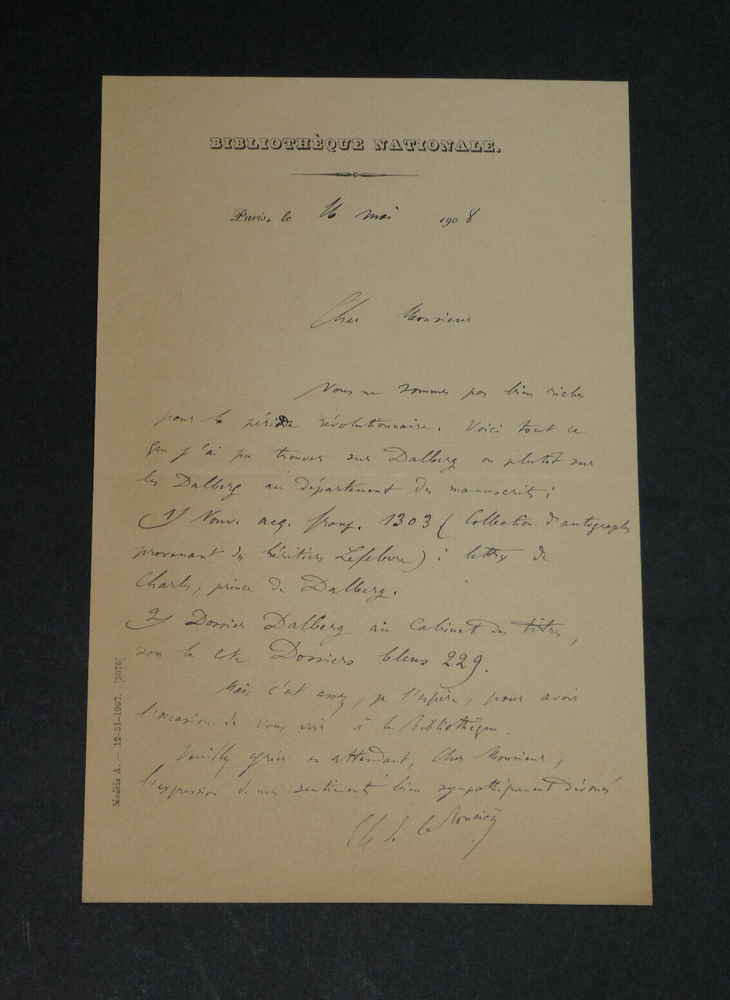 BIBLIOTHÈQUE NATIONALE.
Paris, le 16 mai 1908
Cher Monsieur
Nous ne sommes pas bien riches
pour la période révolutionnaire. Voici tout ce
que j'ai pu trouver sur Dalberg ou plutôt sur
les Dalberg au département des manuscrits :
1) Nouv. acq. franç. 1303 (Collection d'autographes
provenant des héritiers Lefebvre) : lettre de
Charles, prince de Dalberg.
2) Dossier Dalberg au Cabinet des titres,
sous la cote Dossiers bleus 229.
Mais c'est assez, je l'espère, pour avoir
l'occasion de vous voir à la Bibliothèque.
Veuillez agréer en attendant, Cher Monsieur,
l'expression de mes sentiments bien sympathiquement dévoués
Ch de la Roncière
Modèle A. — 12-51-1907. [3076]